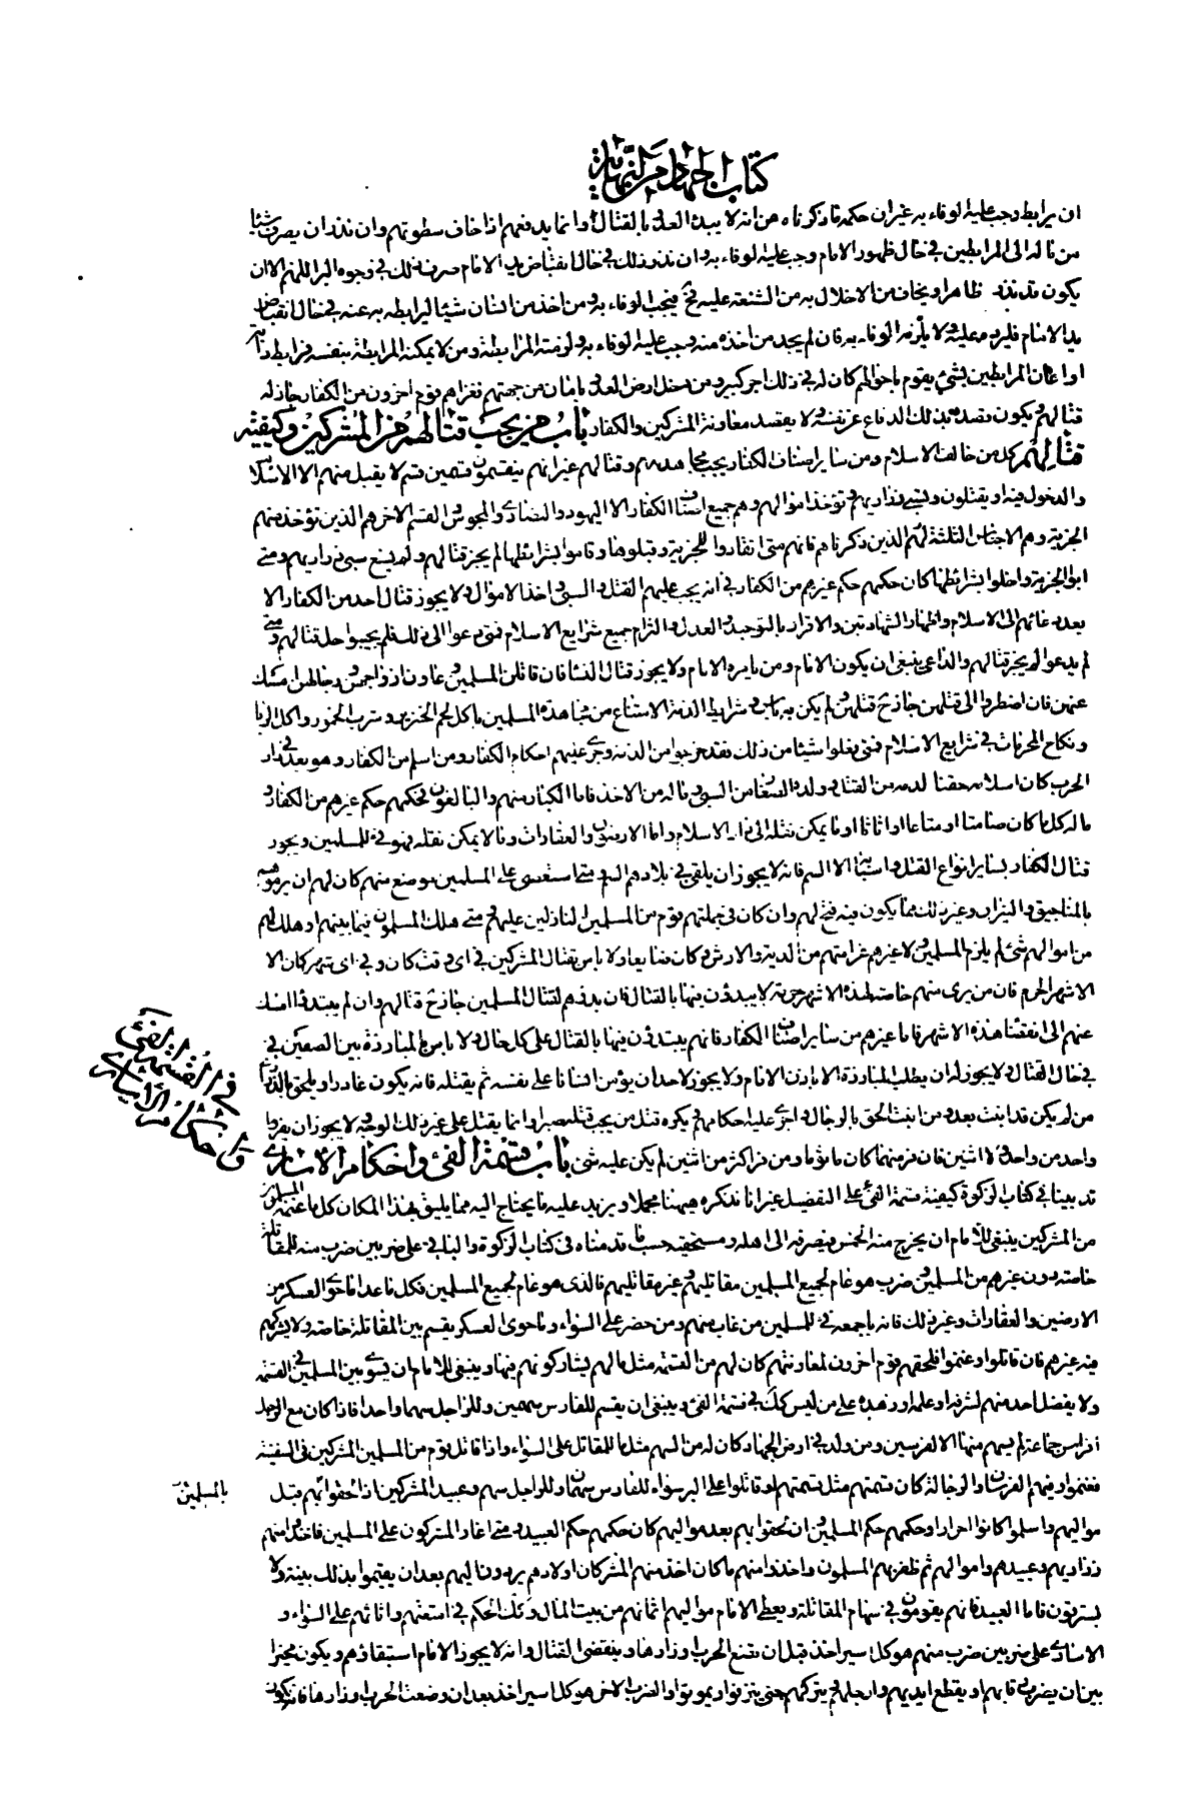 كتاب الجهاد من النهاية
ان يرابط وجب عليه الوفاء به غير ان حكمه ما ذكرناه من انه لا يبدء العدو بالقتال وانما يدفعهم اذا خاف سطوتهم وان نذر ان يصرف شيئا
من ماله الى المرابطين في حال ظهور الامام وجب عليه الوفاء به وان نذر ذلك في حال انقباض يد الامام صرف ذلك في وجوه البر اللهم الا ان
يكون قد نذر ظاهرا ويخاف من الاخلال به من الشنعة عليه فح فيجب الوفاء به ومن اخذ من انسان شيئا ليرابط به عنه في حال انقباض
يد الامام فليرده عليه ولا يلزمه الوفاء به فان لم يجد من اخذه منه وجب عليه الوفاء به ولزمته المرابطة ومن لا يمكنه المرابطة بنفسه فرابط دابته
او اعان المرابطين بشيء يقوم باحوالهم كان له في ذلك اجر كبير ومن دخل ارض العدو بامان من جهتهم فغزاهم قوم اخرون من الكفار جاز له
قتالهم ويكون قصده بذلك الدفاع عن نفسه ولا يقصد معاونة المشركين والكفار باب من يجب قتالهم من المشركين وكيفية
قتالهم كل من خالف الاسلام ومن سائر اصناف الكفار يجب مجاهدتهم وقتالهم غير انهم ينقسمون قسمين قسم لا يقبل منهم الا الاسلام
والدخول فيه او يقتلون وتسبى ذراريهم وتؤخذ اموالهم وهم جميع اصناف الكفار الا اليهود والنصارى والمجوس والقسم الاخر هم الذين تؤخذ منهم
الجزية وهم الاجناس الثلثة الذين ذكرناهم فانهم متى انقادوا للجزية وقبلوها وقاموا بشرائطها لم يجز قتالهم ولم يسغ سبى ذراريهم ومتى
ابوا الجزية واخلوا بشرائطها كان حكمهم حكم غيرهم من الكفار في انه يجب عليهم القتل والسبى واخذ الاموال ولا يجوز قتال احد من الكفار الا
بعد دعائهم الى الاسلام واظهار الشهادتين والاقرار بالتوحيد والعدل والتزام جميع شرايع الاسلام فمتى دعوا الى ذلك فلم يجيبوا حل قتالهم ومتى
لم يدعوا لم يجز قتالهم والداعي ينبغي ان يكون الامام ومن يامره الامام ولا يجوز قتال النساء فان قاتلن المسلمين وعاون ازواجهن ورجالهن امسك
عنهن فان اضطروا الى قتلهن جاز ح قتلهن ولم يكن به باس وشرايط الذمة الامتناع من مجاهدة المسلمين باكل لحم الخنزير وشرب الخمور واكل الربا
ونكاح المحرمات في شرايع الاسلام فمتى فعلوا شيئا من ذلك فقد خرجوا من الذمة وجرى عليهم احكام الكفار ومن اسلم من الكفار وهو بعد في دار
الحرب كان اسلامه حقنا لدمه من القتل وولده الصغار من السبى وماله من الاخذ فاما الكبار منهم والبالغون فحكمهم حكم غيرهم من الكفار و
ماله كل ما كان صامتا او متاعا او اثاثا او ما يمكن نقله الى دار الاسلام واما الارضون والعقارات وما لا يمكن نقله فهو فئ للمسلمين ويجوز
قتال الكفار بسائر انواع القتل واسبابه الا السم فانه لا يجوز ان يلقى في بلادهم السم ومتى استعصى على المسلمين موضع منهم كان لهم ان يرموهم
بالمناجيق والنيران وغير ذلك مما يكون فيه فتح لهم وان كان في جملتهم قوم من المسلمين النازلين عليهم ومتى هلك المسلمون فيما بينهم او هلك لهم
من اموالهم شئ لم يلزم المسلمين ولا غيرهم غرامتهم من الدية والارش وكان ضايعا ولا باس بقتال المشركين في اى وقت كان وفي اى شهر كان الا
الاشهر الحرم فان من يرى منهم خاصة لهذه الاشهر حرمة لا يبدؤن فيها بالقتال فان بدؤهم لقتال المسلمين جاز ح قتالهم وان لم يبتدؤا امسك
عنهم الى انقضاء هذه الاشهر فاما غيرهم من سائر اصناف الكفار فانهم يبتدؤن فيها بالقتال على كل حال ولا باس بالمبارزة بين الصفين في
في حال القتال ولا يجوز له ان يطلب المبارزة الا باذن الامام ولا يجوز لاحد ان يؤمن انسانا على نفسه ثم يقتله فانه يكون غادرا ويلحق بالذراري
من لم يكن قد انبت بعد ومن انبت الحق بالرجال واجرى عليه احكامهم ويكره قتل من يجب قتله صبرا وانما يقتل على غير ذلك الوجه ولا يجوز ان يفر
واحد من واحد ولا اثنين فان فر منهما كان ماثوما ومن فر اكثر من اثنين لم يكن عليه شئ باب قسمة الفئ واحكام الاسارى
قد بينا في كتاب الزكوة كيفية قسمة الفئ على التفصيل غير انا نذكره ههنا مجملا ونزيد عليه ما يحتاج اليه مما يليق بهذا المكان كل ما غنمه المسلمون
من المشركين ينبغي للامام ان يخرج منه الخمس فيصرفه الى اهله ومستحقيه حسب ما قدمناه في كتاب الزكوة والباقي على ضربين ضرب منه للمقاتلة
خاصة دون غيرهم من المسلمين وضرب هو عام لجميع المسلمين مقاتليهم وغير مقاتليهم فالذى هو عام لجميع المسلمين فكل ما عدا ما حوى العسكر من
الارضين والعقارات وغير ذلك فانه باجمعه فئ للمسلمين من غاب منهم ومن حضر على السواء وما حوى العسكر يقسم بين المقاتلة خاصة ولا يشركهم
فيه غيرهم فان قاتلوا وغنموا فلحقهم قوم اخرون لمعاونتهم كان لهم من الغنيمة مثل مالهم يشاركونهم فيها وينبغي للامام ان يسوى بين المسلمين في القسمة
ولا يفضل احد منهم لشرفه او علمه او زهده على من ليس كك في قسمة الفئ وينبغي ان يقسم للفارس سهمين وللراجل سهما واحدا فاذا كان مع الرجل
افراس جماعة لم يسهم منها الا لفرسين ومن ولد في ارض الجهاد كان له من السهم مثل ما للمقاتل على السواء واذا قاتل قوم من المسلمين المشركين في السفينة
فغنموا وفيهم الفرسان والرجالة كان قسمتهم مثل قسمتهم لو قاتلوا على البر سواء للفارس سهمان وللراجل سهم وعبيد المشركين اذا لحقوا بهم قبل
بالمسلمين
مواليهم واسلموا كانوا احرارا وحكمهم حكم المسلمين وان لحقوا بهم بعد مواليهم كان حكمهم حكم العبيد ومتى اغار المشركون على المسلمين فاخذوا منهم
ذراريهم وعبيدهم واموالهم ثم ظفر بهم المسلمون واخذوا منهم ما كان اخذ منهم المشركان اولادهم يردون اليهم بعد ان يقيموا بذلك بينة ولا
يسترقون فاما العبيد فانهم يقومون في سهام المقاتلة ويعطى الامام مواليهم اثمانهم من بيت المال وكذلك الحكم في امتعتهم واثاثهم على السواء و
الاسارى على ضربين ضرب منهم هو كل اسير اخذ قبل ان تضع الحرب اوزارها وينقضى القتال وانه لا يجوز الامام استبقاؤهم ويكون مخيرا
بين ان يضرب رقابهم او يقطع ايديهم وارجلهم ويتركهم حتى ينزفوا ويموتوا والضرب الاخر هو كل اسير اخذ بعد ان وضعت الحرب اوزارها فانه يكون
في القسمة الفئ
واحكام الاسارى